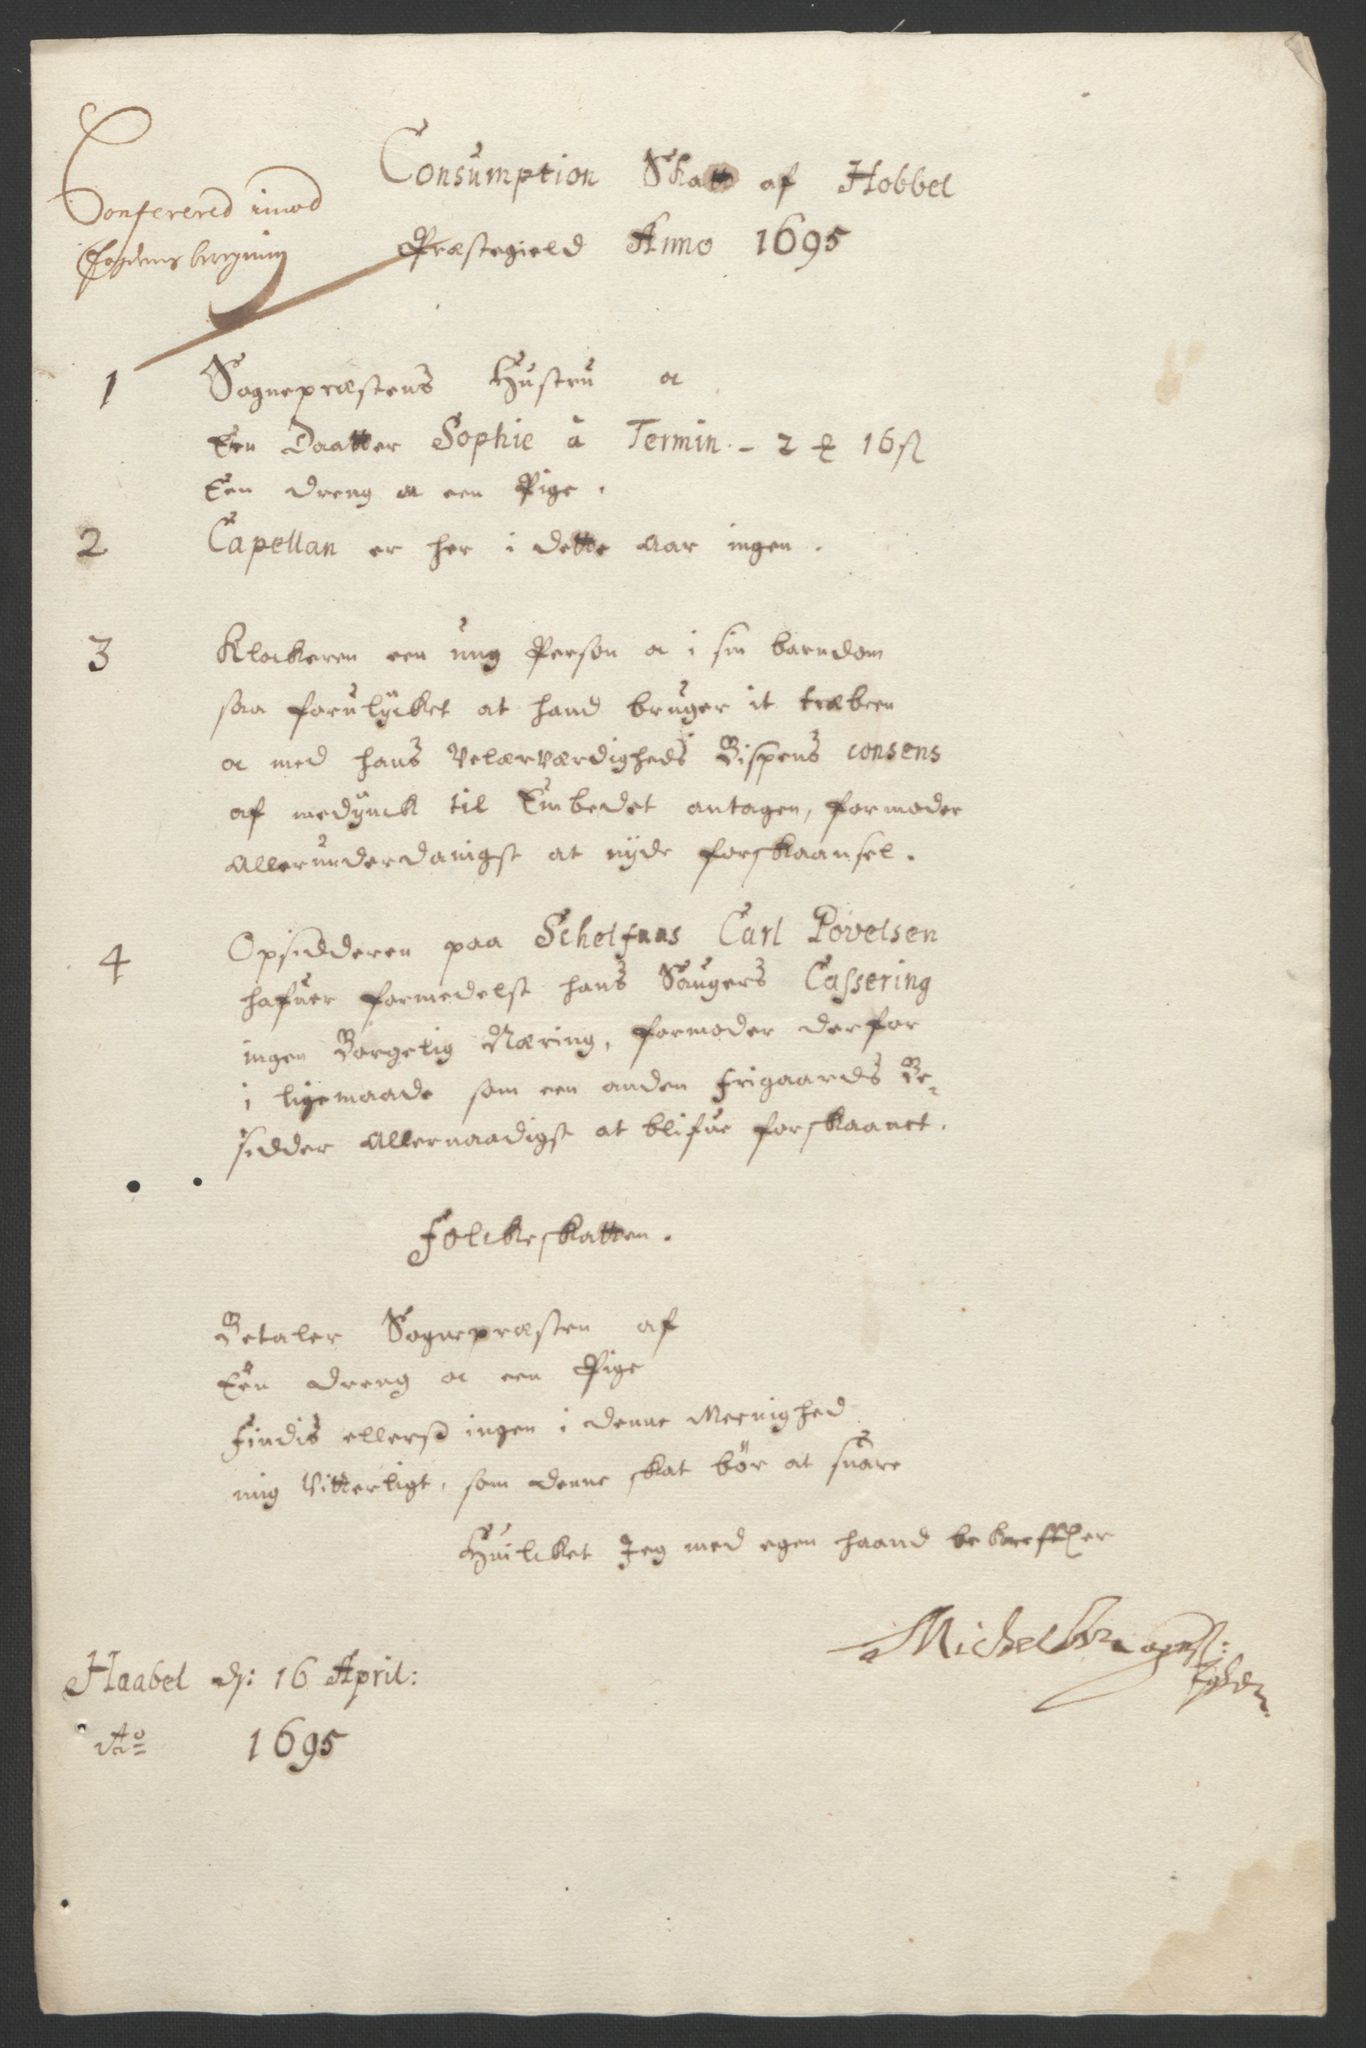 Conferered imod
Fogdens beregning
Consumption Skatt af Hobbel
Præstegield Anno 1695
1 Sognepræstens Hustru oc
Een Daatter Sophie a Termin - 2 16 ſl
Een dreng oc een Pige.
2 Capellan er her i dette Aar ingen.
3 Klockeren een ung Person oc i sin barndom
saa forulÿcket at hand bruger it træbeen
oc med hans Velærværdigheds Bispens consens
af medÿnck til Embedet antagen, formoder
Allerunderdanigst at nÿde forskaansel.
4 Opsidderen paa Schelfnas Carl Povelsen
hafuer formedelst hans Saugers Cassering
ingen Borgelig Næring, formoder derfor
i ligemaade som een anden Frigaards Be-
sidder Allernaadigst at blifue forskaanet.
Folckeskatten.
Betaler Sognepræsten af
Een dreng oc een Pige
Findis ellers ingen i denne Meenighed
mig Vitterligt, som denne skat bør at suare
Huilcket Jeg med egen haand bekreffter
Michel
Haabel d: 16 April:
Ao 1695